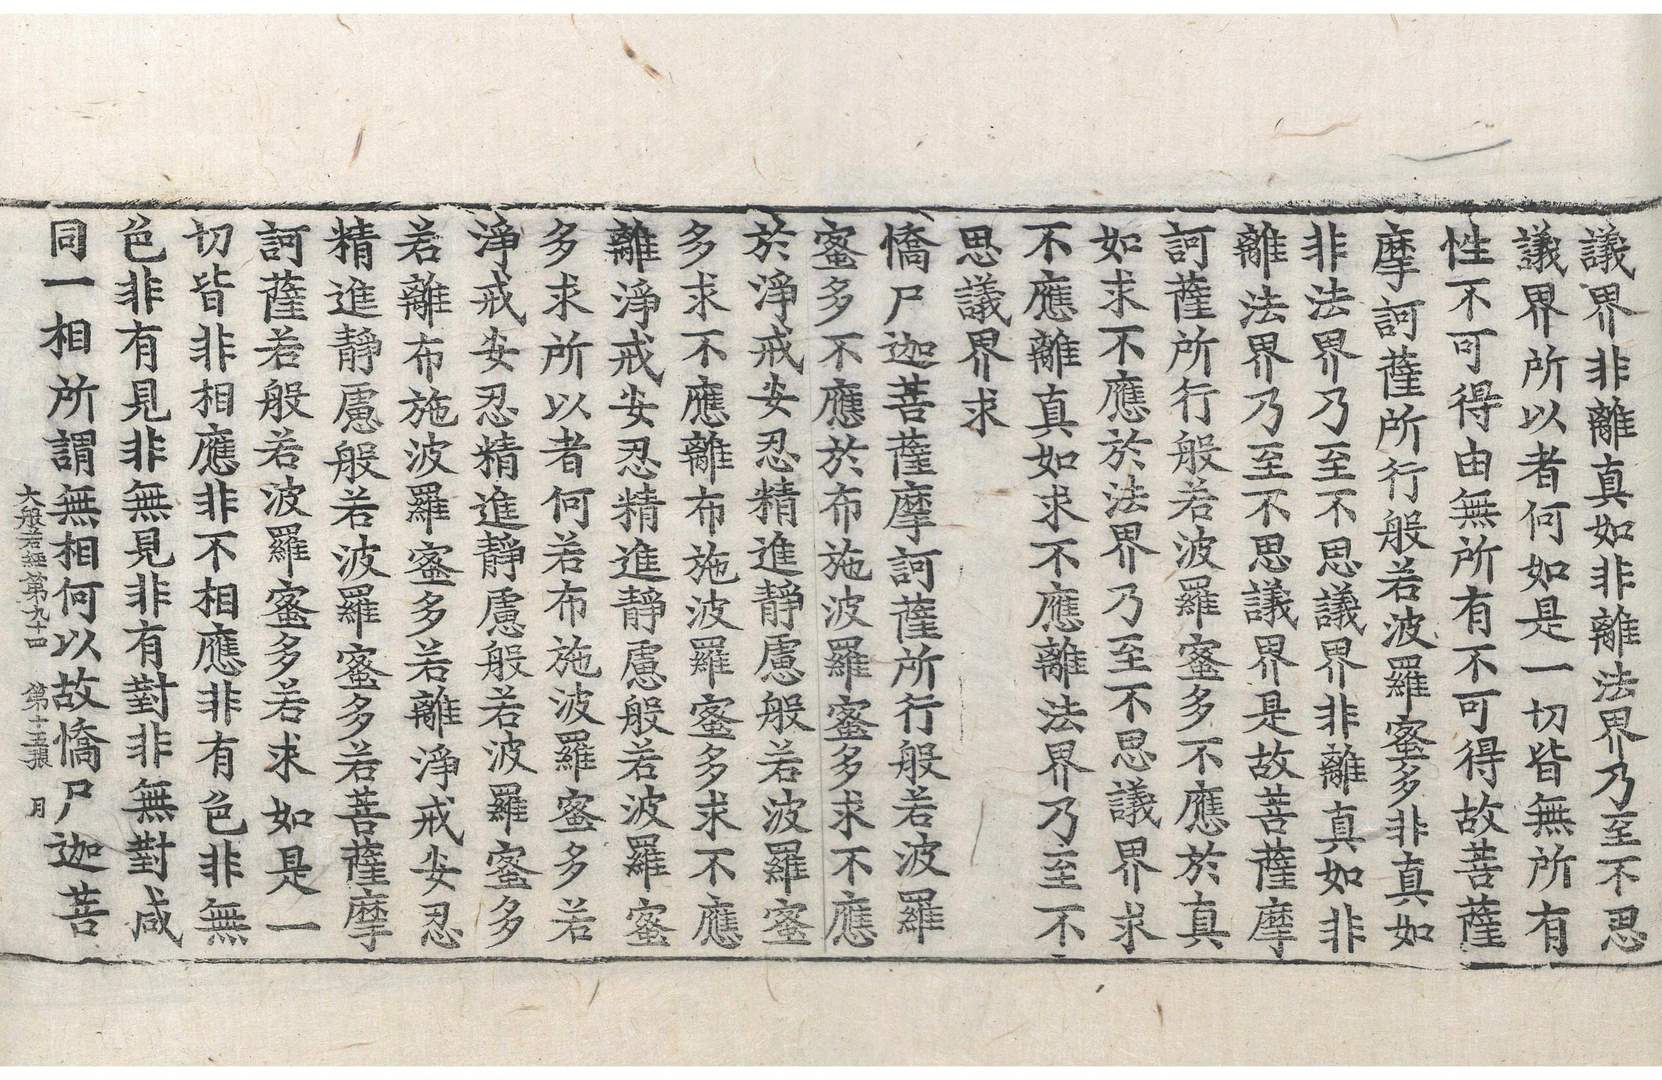 議界非離真如非離法界乃至不思
議界所以者何如是一切皆無所有
性不可得由無所有不可得故菩薩
摩訶薩所行般若波羅蜜多非真如
非法界乃至不思議界非離真如非
離法界乃至不思議界是故菩薩摩
訶薩所行般若波羅蜜多不應於真
如求不應於法界乃至不思議界求
不應離真如求不應離法界乃至不
思議界求
憍尸迦菩薩摩訶薩所行般若波羅
蜜多不應於布施波羅蜜多求不應
於淨戒安忍精進靜慮般若波羅蜜
多求不應離布施波羅蜜多求不應
離淨戒安忍精進靜慮般若波羅蜜
多求所以者何若布施波羅蜜多若
淨戒安忍精進靜慮般若波羅蜜多
若離布施波羅蜜多若離淨戒安忍
精進靜慮般若波羅蜜多若菩薩摩
訶薩若般若波羅蜜多若求如是一
切皆非相應非不相應非有色非無
色非有見非無見非有對非無對咸
同一相所謂無相何以故憍尸迦菩
大般若經第九十四 第十五張 月